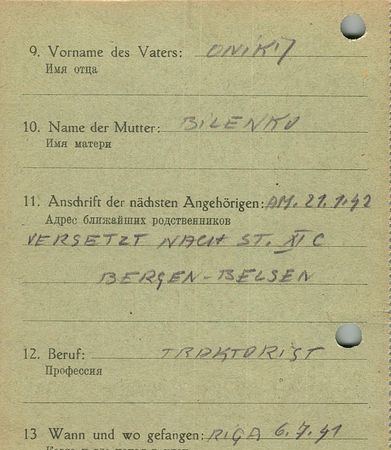 9. Vorname des Vaters: ONIKIJ
Имя отца
10. Name der Mutter: BILENKO
Имя матери
11. Anschrift der nächsten Angehörigen: AM. 21.1.42
Адрес ближайших родственников
VERSETZT NACH ST. XI C
BERGEN-BELSEN
12. Beruf: TRAKTORIST
Профессия
13 Wann und wo gefangen: RIGA 6.7.41